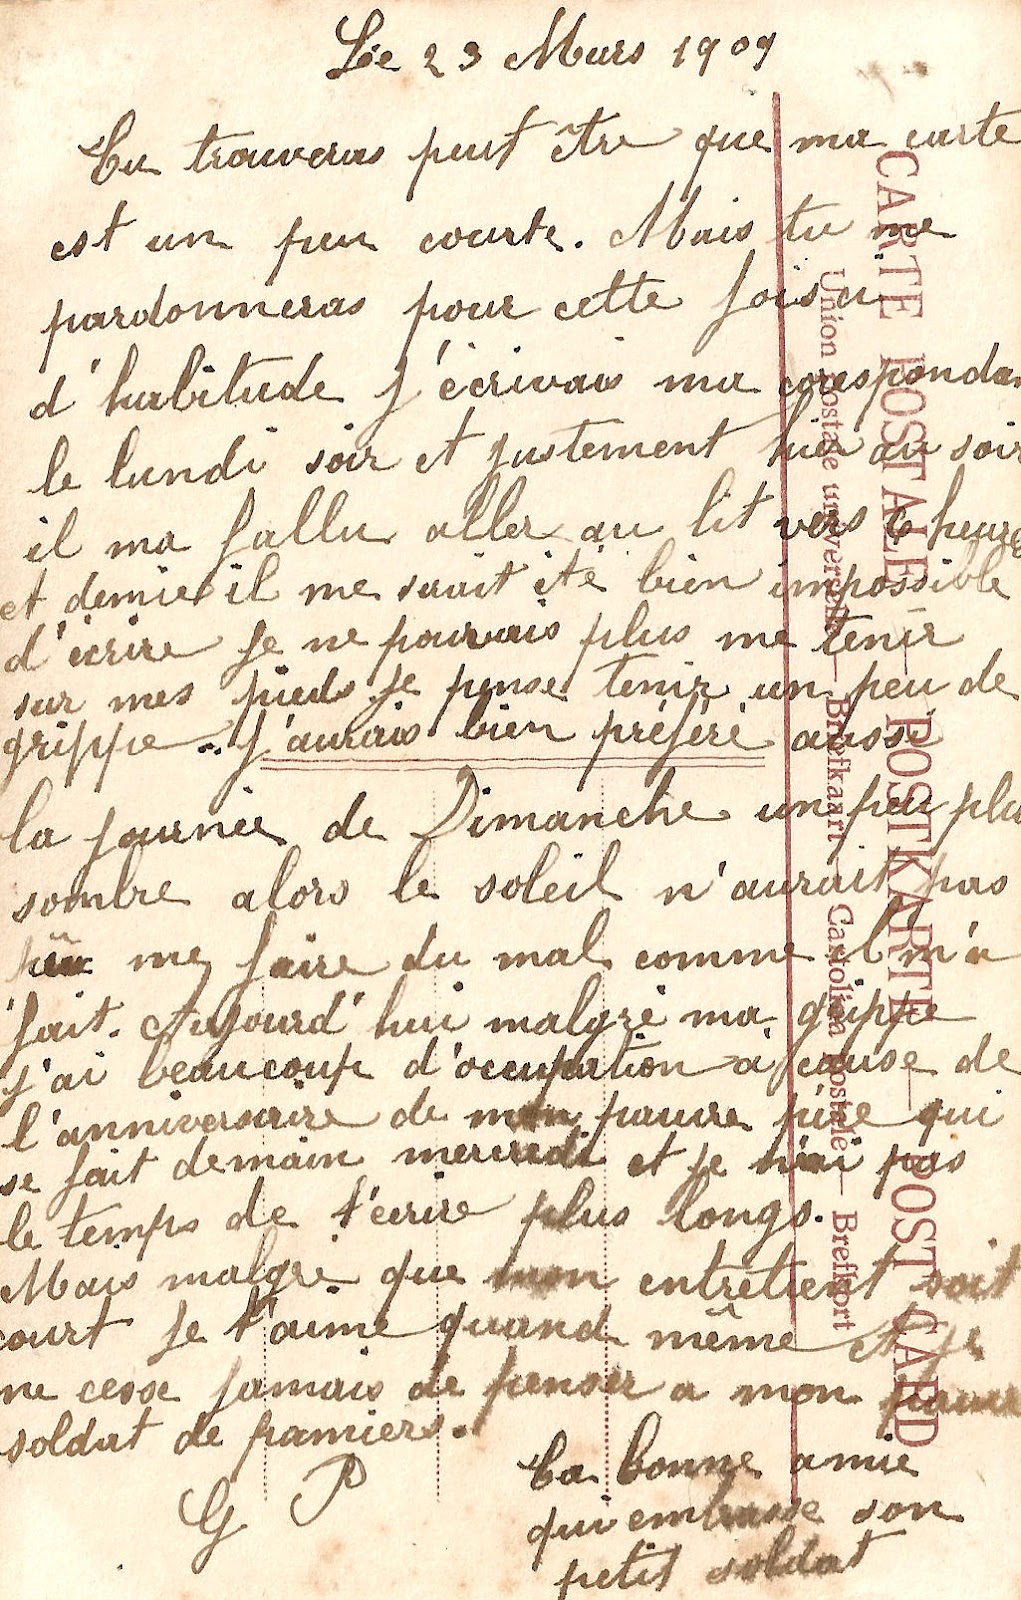 Le 23 Mars 1909
Tu trouveras peut être que ma carte
est un peu courte. Mais tu me
pardonneras pour cette fois ci
d'habitude j'écrivais ma corespondan
le lundi soir et justement hier au soir
il ma fallu aller au lit vers 6 heures
et demie il me serait été bien impossible
d'écrire je ne pouvais plus me tenir
sur mes pieds je pense tenir un peu de
grippe. j'aurais bien préféré aussi
la journée de Dimanche un peu plu
sombre alors le soleil n'aurait pas
pû me faire du mal comme l m'a
fait. Aujourd'hui malgré ma grippe
j'ai beaucoup d'occupation à cause de
l'anniversaire de mon pauvre père qui
se fait demain mercredi et je n'ai pas
le temps de t'écrire plus longs.
Mais malgré que mon entretient soit
court je t'aime quand même et je
ne cesse jamais de penser a mon
soldat de pamiers.
G P
Ta bonne amie
qui embrasse son
petit soldat
CARTE POSTALE — POSTKARTE — POST CARD
Union postale universelle — Briefkaart Cartolina postale — Brefkort